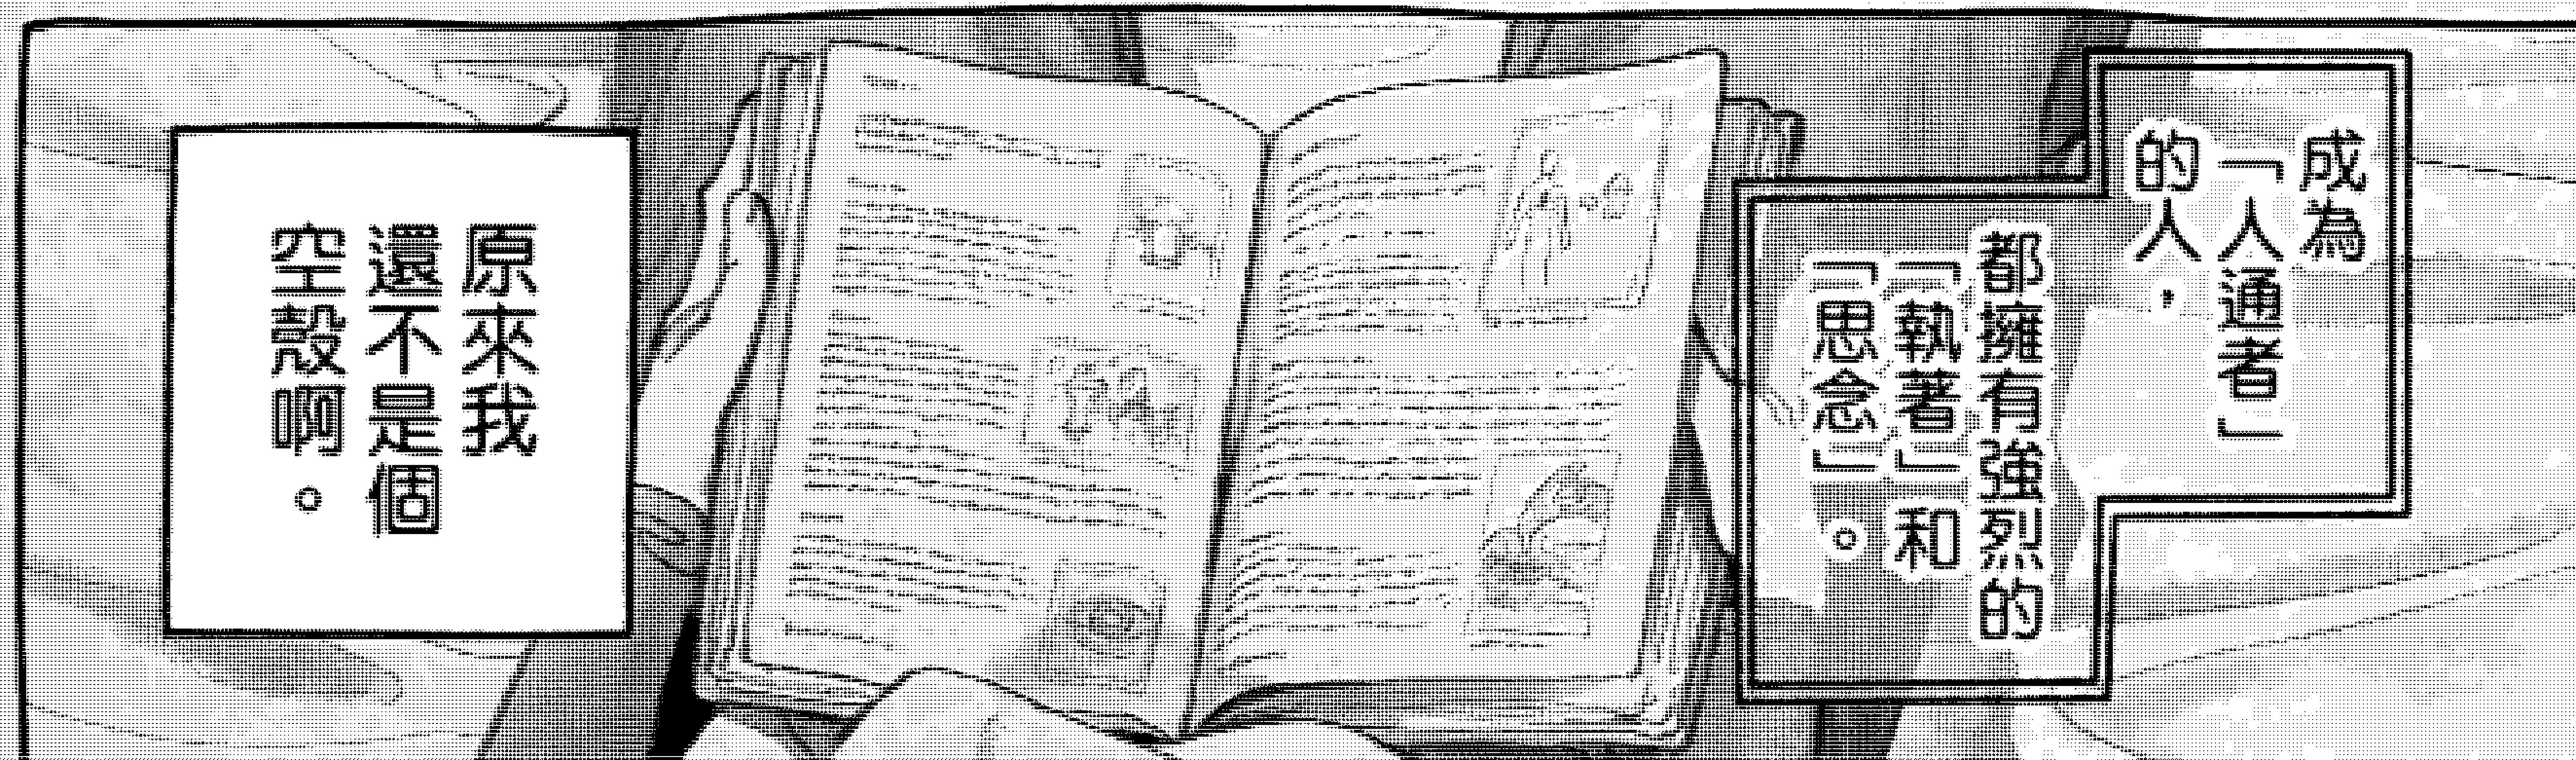 成為
「人通者」
的人，
都擁有強烈的
「執著」和
「思念」。
原來我
還不是個
空殼啊。